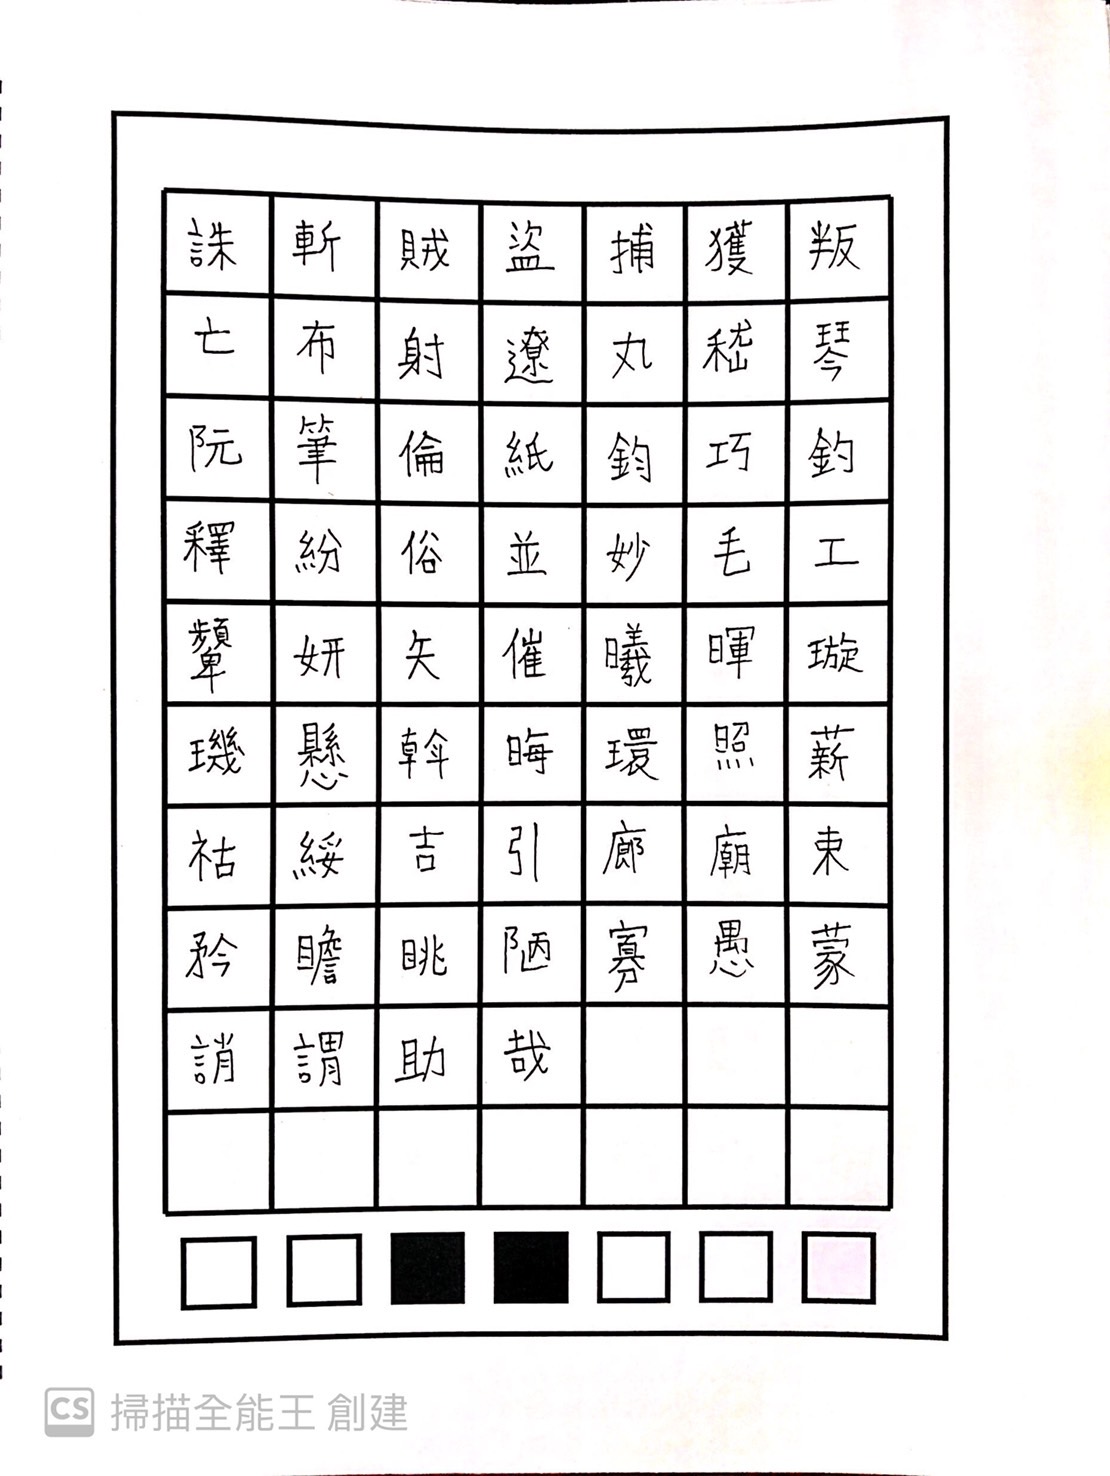 誅斬賊盜捕獲叛
亡布射遼丸嵇琴
阮筆倫紙鈞巧釣
釋紛俗並妙毛工
顰妍矢催曦暉璇
璣懸斡晦環照薪
祜綏吉引廊廟束
矜瞻眺陋寡愚蒙
誚謂助哉
CS 掃描全能王 創建